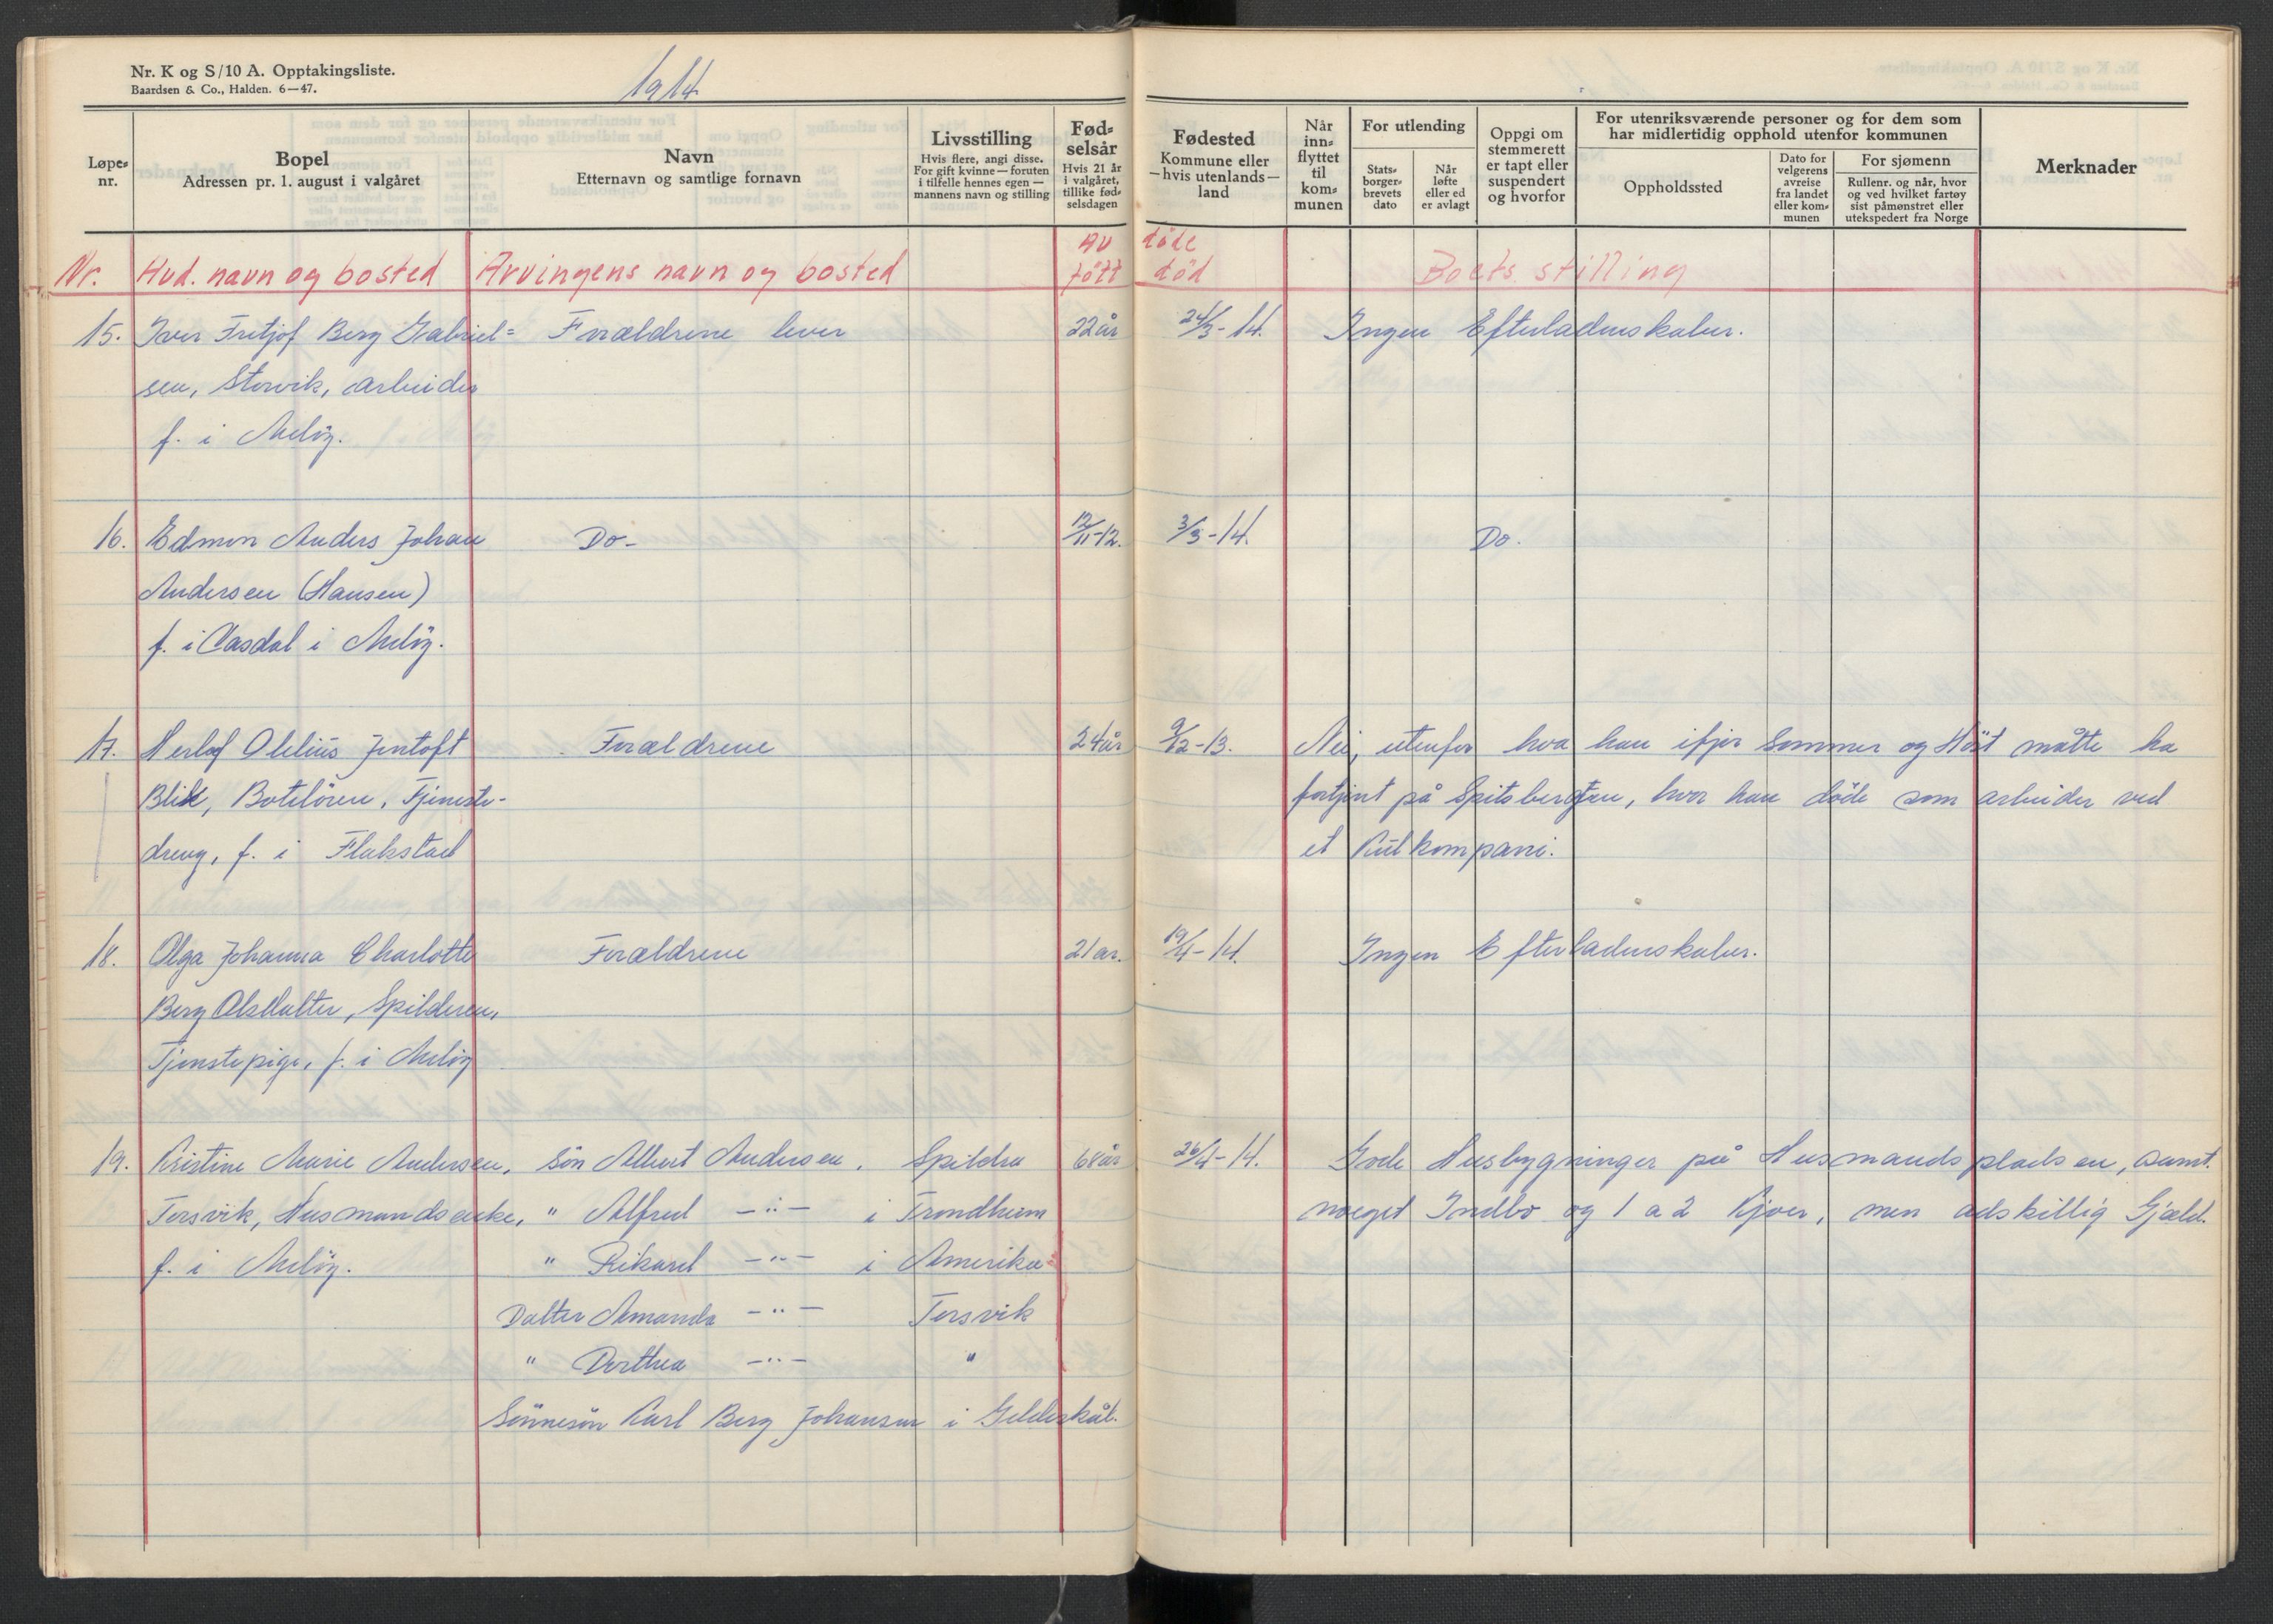 Nr. K og S/10 A. Opptakingsliste.
Baardsen & Co., Halden. 6—47.
1914
Løpe-nr.
Bopel
Adressen pr. 1. august i valgåret
Navn
Etternavn og samtlige fornavn
Livsstilling
Hvis flere, angi disse.
For gift kvinne — foruten
i tilfelle hennes egen —
mannens navn og stilling
Fød-
selsår
Hvis 21 år
i valgåret,
tillike fød-
selsdagen
Fødested
Kommune eller
— hvis utenlands —
land
Når
inn-
flyttet
til
kom-
munen
For utlending
Stats-
borger-
brevets
dato
Når
løfte
eller ed
er avlagt
Oppgi om
stemmerett
er tapt eller
suspendert
og hvorfor
For utenriksværende personer og for dem som
har midlertidig opphold utenfor kommunen
Oppholdssted
Dato for
velgerens
avreise
fra landet
eller kom-
munen
For sjømenn
Rullenr. og når, hvor
og ved hvilket fartøy
sist påmønstret eller
utekspedert fra Norge
Merknader
Av døde
Nr. Avd. navn og bosted Arvingens navn og bosted født død Boets stilling
15. Iver Fritjof Berg Gabriel= Forældrene lever 22 år 24/3-14. Ingen Efterladenskaber.
sen, Storvik, arbeider
f. i Meløy.
16. Edmon Anders Johan Do- 12/11-12. 3/3-14. Do.
Andersen (Hansen)
f. i Aasdal i Meløy.
17. Herlof Olelius Jentoft Forældrene 24 år 9/12-13. Nei, utenfor hva han ifjor Sommer og Høst måtte ha
Blik, Boteløren, Tjeneste- fortjent på Spitsbergen, hvor han døde som arbeider ved
dreng, f. i Flakstad et Kulkompani.
18. Olga Johanna Charlotte Forældrene 21 ar. 19/4-14. Ingen Efterladenskaber.
Berg Olsdatter, Spilderen,
Tjenstepige, f. i Meløy
19. Kristine Marie Andersen, Søn Albert Andersen. Spildra 68 år 26/4-14. Gode Husbygninger på Husmandspladsen, samt
Torsvik, Husmandsenke, " Alfred -"- i Trondheim noeget Indbo og 1 a 2 Kjøer, men adskillig Gjæld.
f. i Meløy. " Rikard -"- i Amerika
Datter Amanda -"- Torsvik
" Dorthea -"- "
Sønnesøn Karl Berg Johansen i Gildeskål.